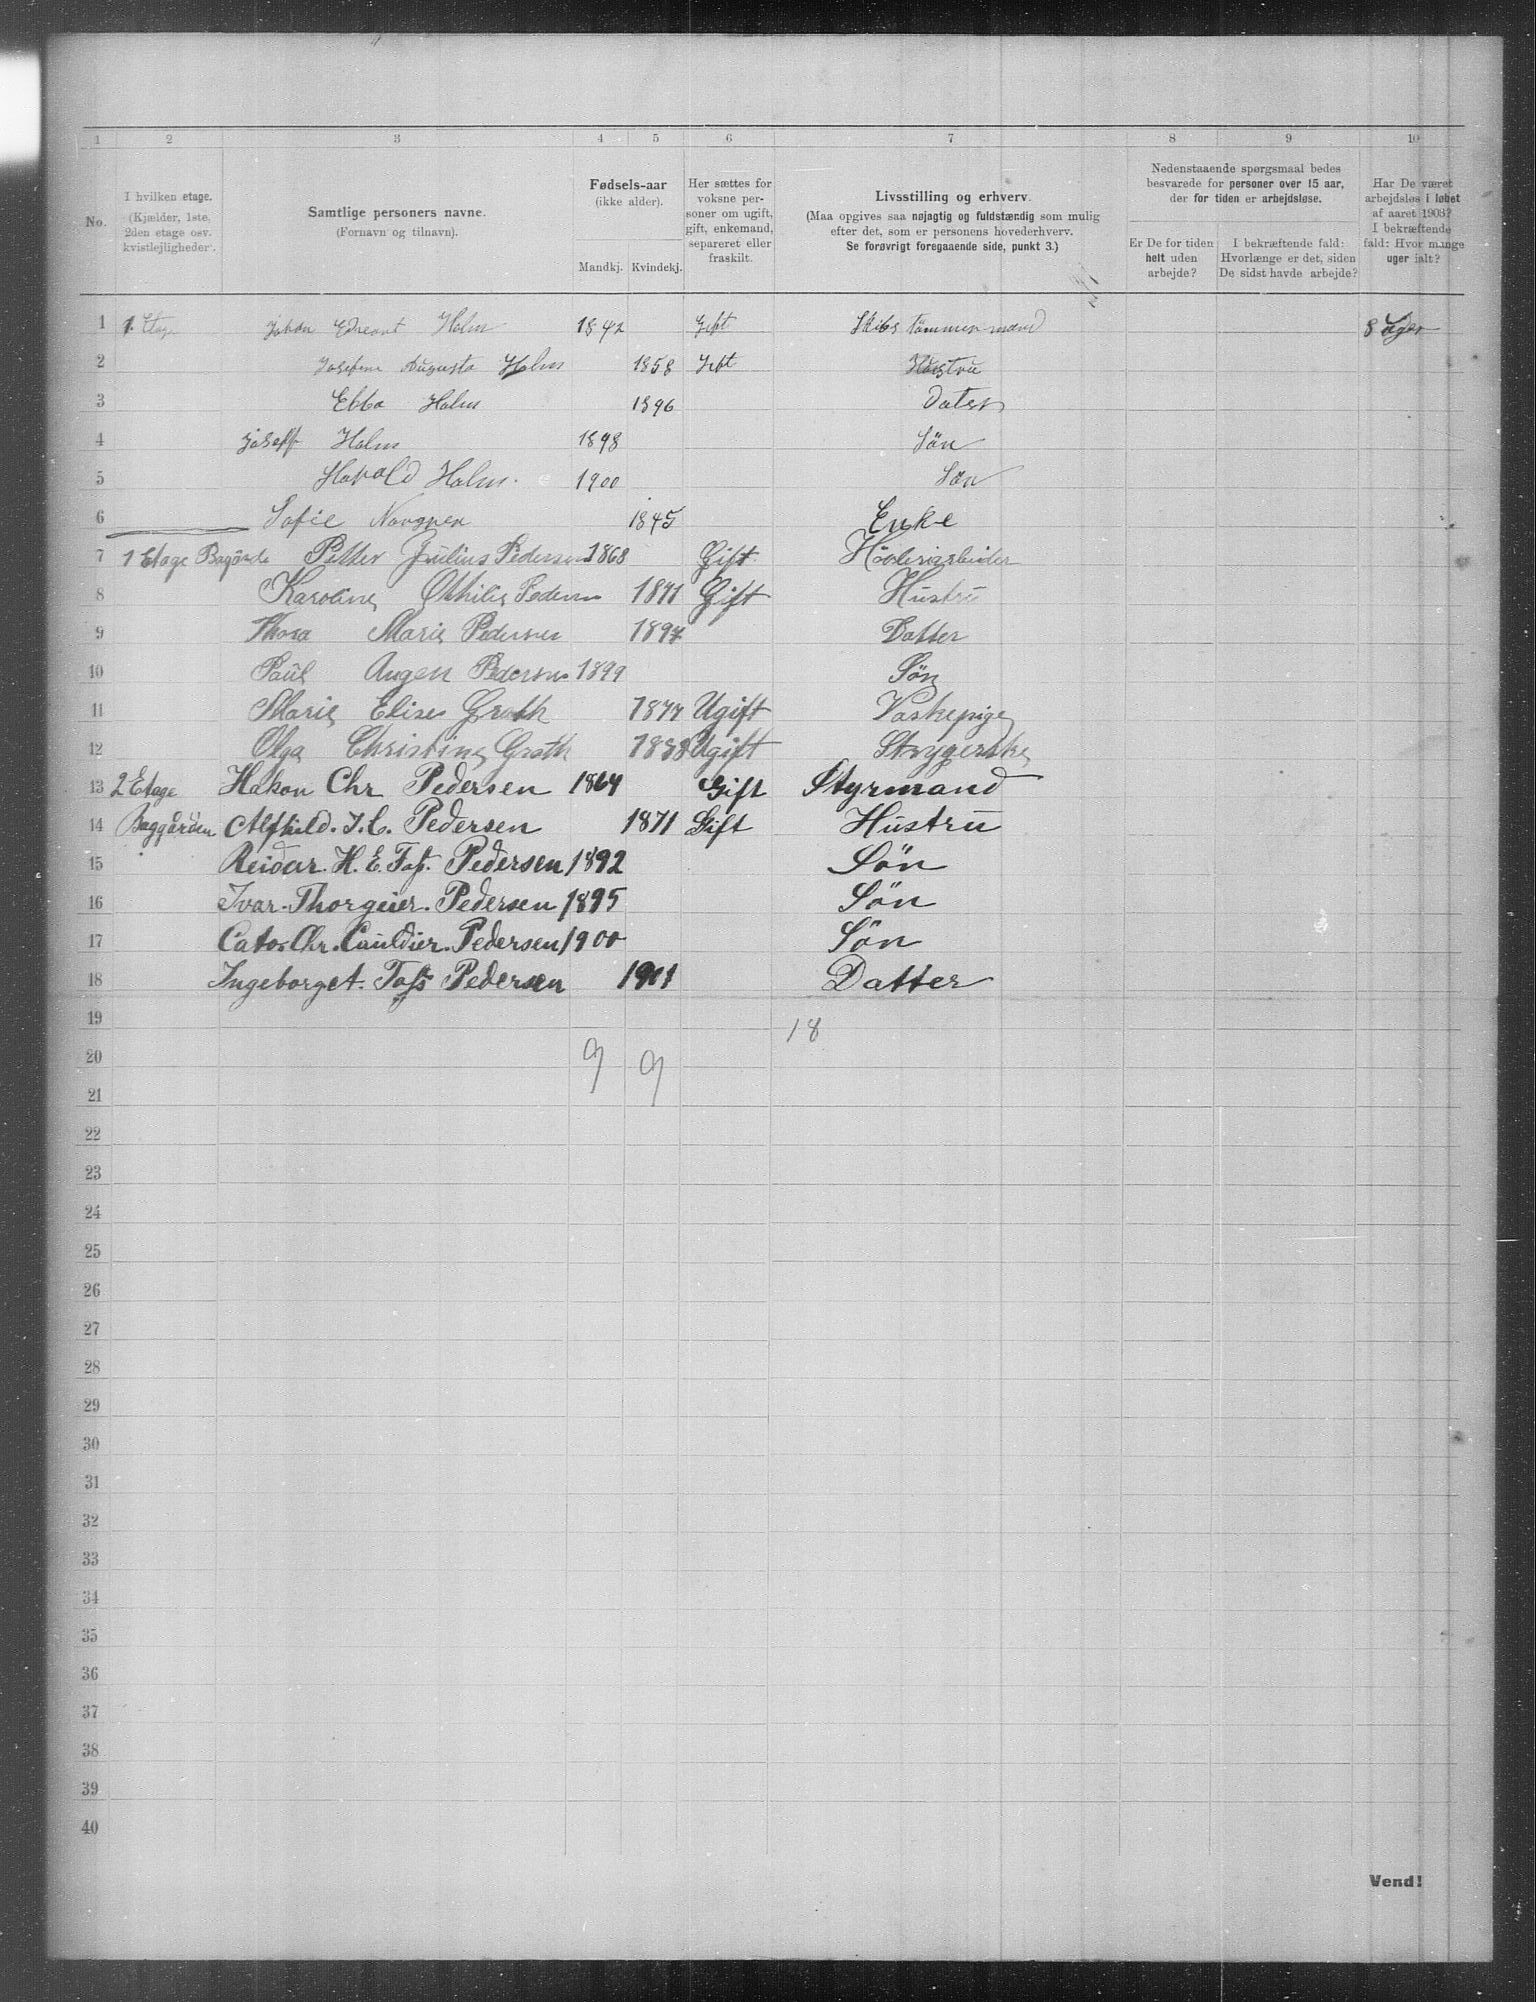 1 2 3 4 5 6 7 8 9 10
No.
I hvilken etage.
(Kjælder, 1ste,
2den etage osv.
kvistlejligheder.
Samtlige personers navne.
(Fornavn og tilnavn).
Fødsels-aar
(ikke alder).
Mandkj. Kvindekj.
Her sættes for
voksne per-
soner om ugift,
gift, enkemand,
separeret eller
fraskilt.
Livsstilling og erhverv.
(Maa opgives saa nøjagtig og fuldstændig som mulig
efter det, som er personens hovederhverv.
Se forøvrigt foregaaende side, punkt 3.)
Nedenstaaende spørgsmaal bedes
besvarede for personer over 15 aar,
der for tiden er arbejdsløse.
Er De for tiden
helt uden
arbejde?
I bekræftende fald:
Hvorlænge er det, siden
De sidst havde arbejde?
Har De været
arbejdsløs i løbet
af aaret 1903?
I bekræftende
fald: Hvor mange
uger ialt?
1 1. Etage Johan Holm 1842 Gift Skibs tømmermand 8 Uger
2 Josefine Augusta Holm 1858 Gift Hustru
3 Ebba Holm 1896 Dater
4 Joseff Holm 1898 Søn
5 Harald Holm 1900 Søn
6 Sofie 1845 Enke
7 1 Etage Petter Julius Pedersen 1868 Gift Høvleriarbeider
8 Karoline Othilie Pedersen 1871 Gift Hustru
9 Thora Marie Pedersen 1897 Datter
10 Paul Augen Pedersen 1899 Søn
11 Marie Elise Groth 1877 Ugift Vaskepige
12 Olga Christine Groth 1888 Ugift Strygerske
13 2 Etage Hakon Chr Pedersen 1864 Gift Styrmand
14 Baggården Alfhild. J. C. Pedersen 1871 Gift Hustru
15 Reidar. H. E. Pedersen 1892 Søn
16 Ivar. Thorgeier. Pedersen 1895 Søn
17 Cato. Chr. Pedersen 1900 Søn
18 Ingeborget. Pedersen 1901 Datter
19 18
20 9 9
21
22
23
24
25
26
27
28
29
30
31
32
33
34
35
36
37
38
39
40
Vend!